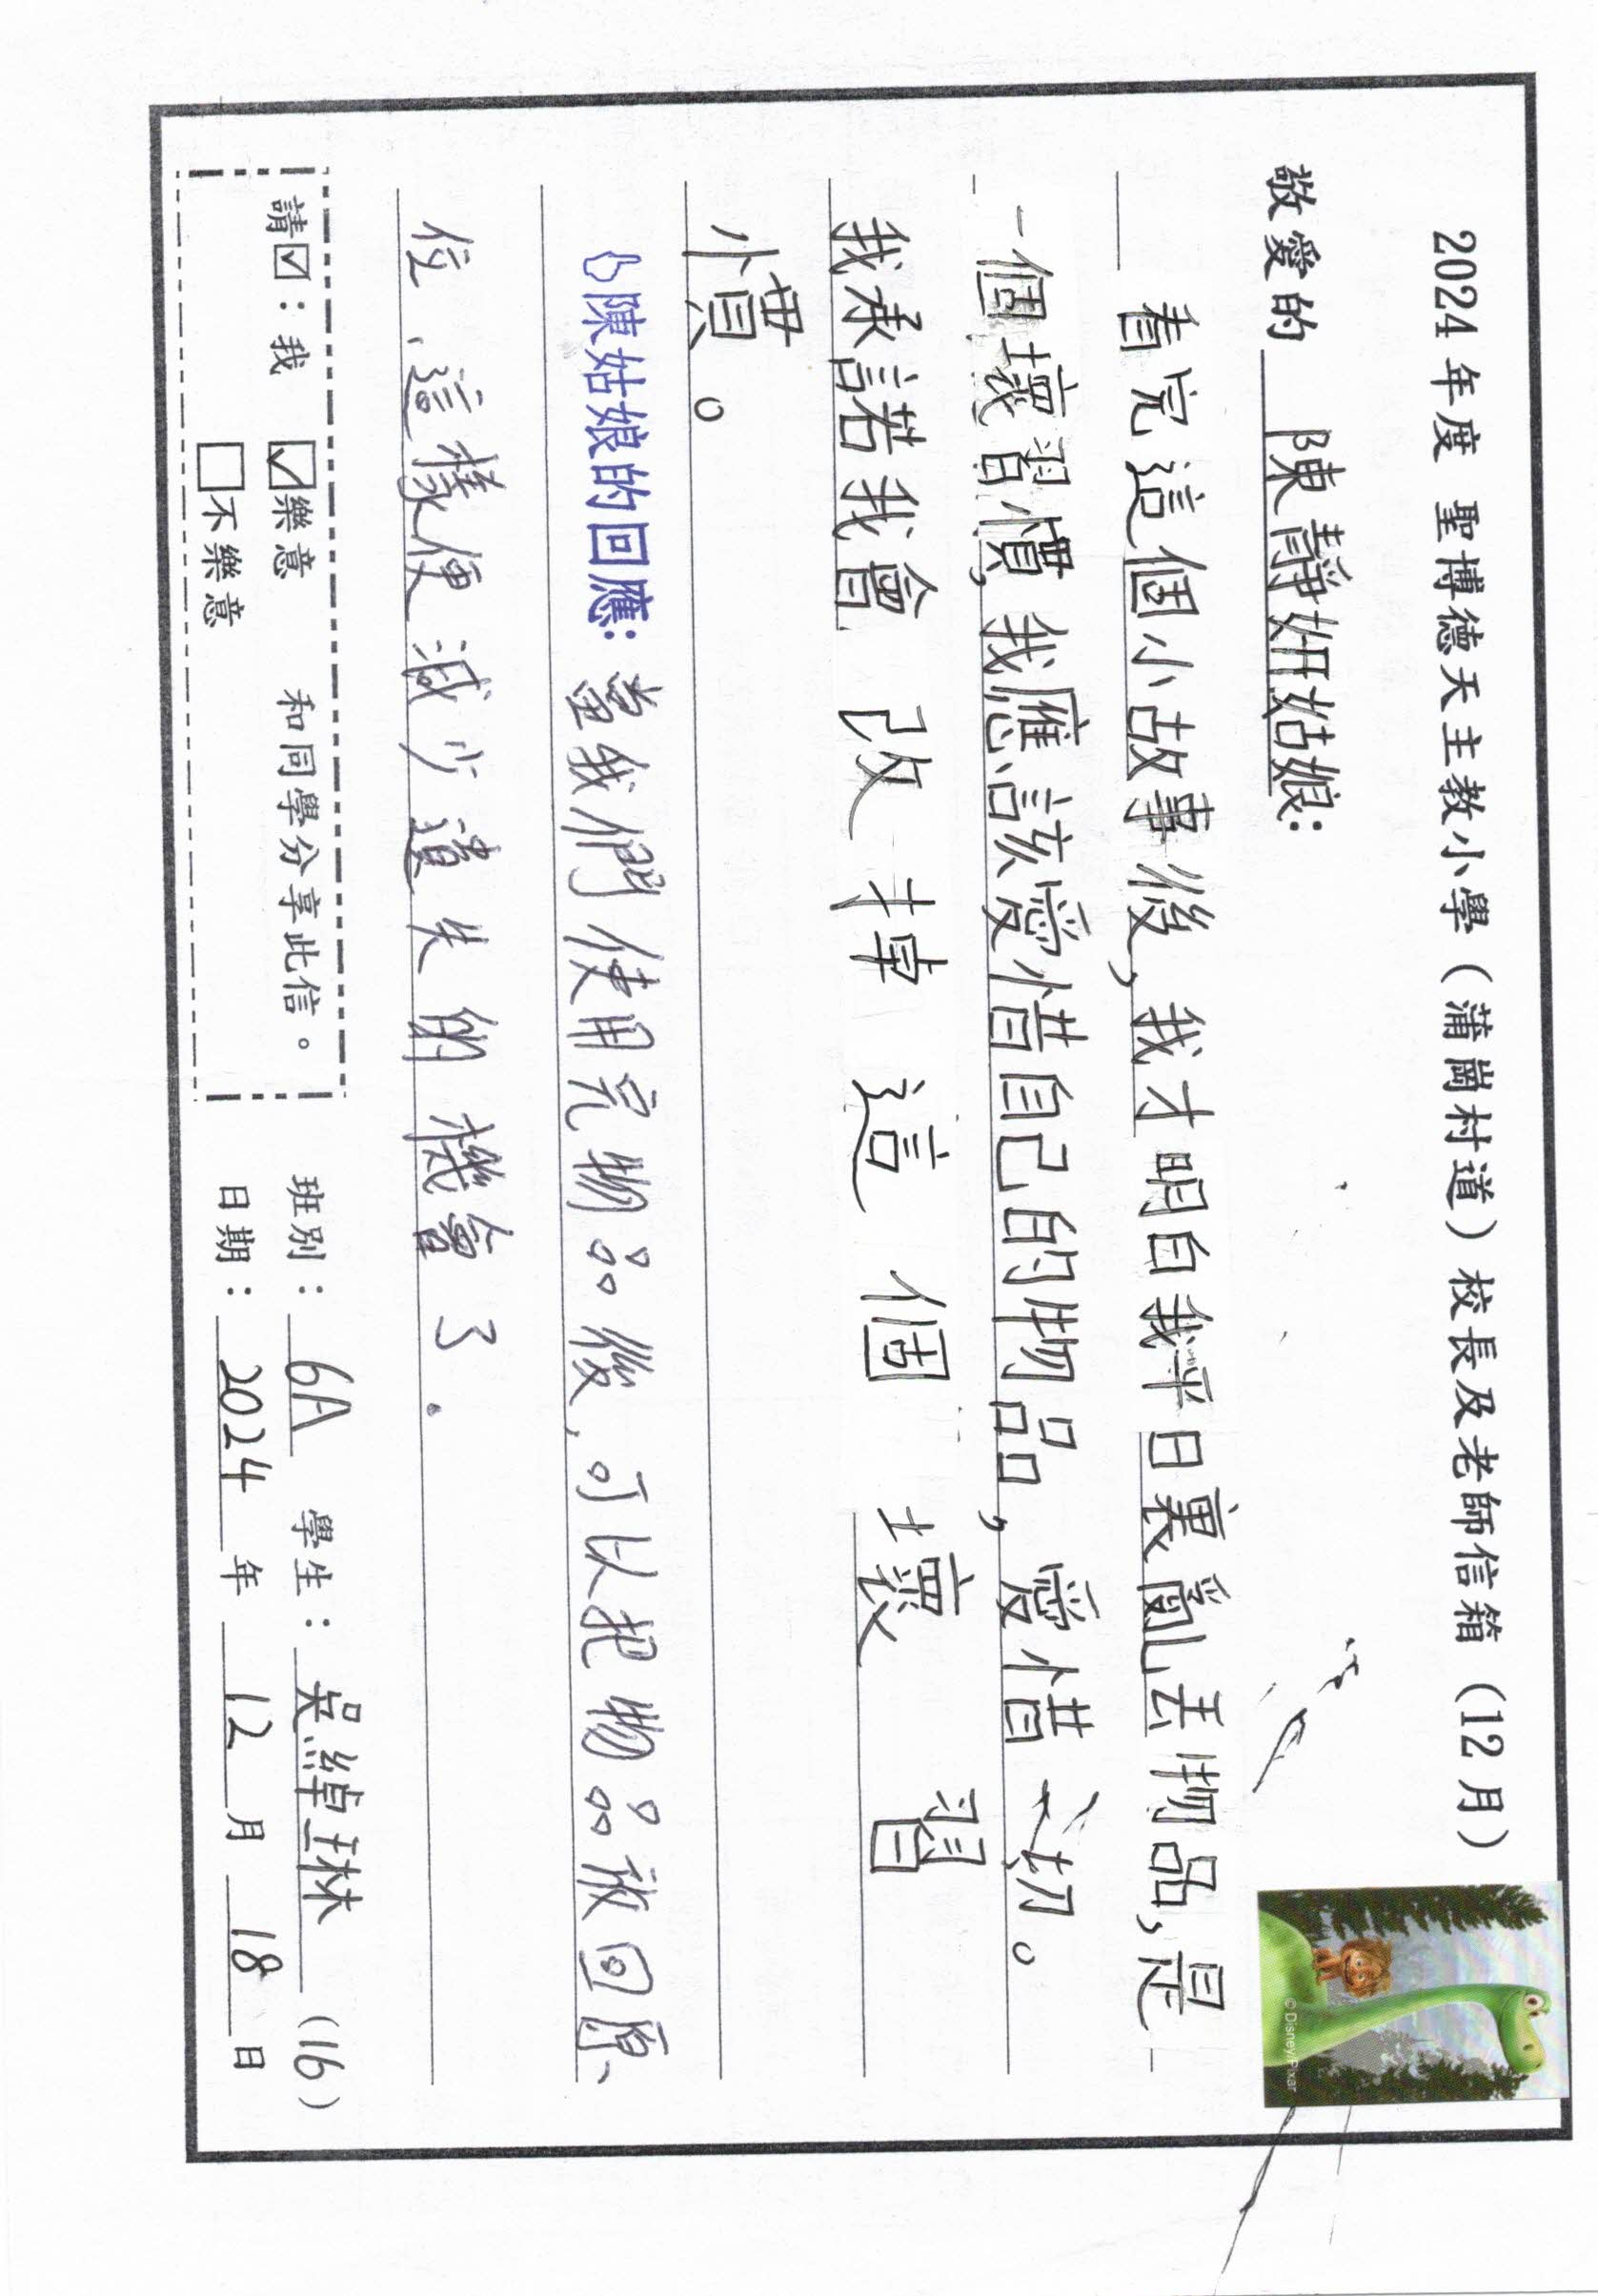 2024年度 聖博德天主教小學（蒲崗村道）校長及老師信箱（12月）
敬愛的 陳靜妞姑娘:
看完這個小故事後,我才明白我平日裏亂丟物品,是
一個壞習慣,我應該愛惜自己的物品,愛惜一切。
我承諾我會改掉這個壞習
慣。
陳姑娘的回應: 當我們使用完物品後,可以把物品放回原
位,這樣便減少遺失的機會了.
請☑:我 ☑樂意 和同學分享此信。
□不樂意
班別:6A 學生:吳綽琳(16)
日期:2024年12月18日
©Disney/Pixar